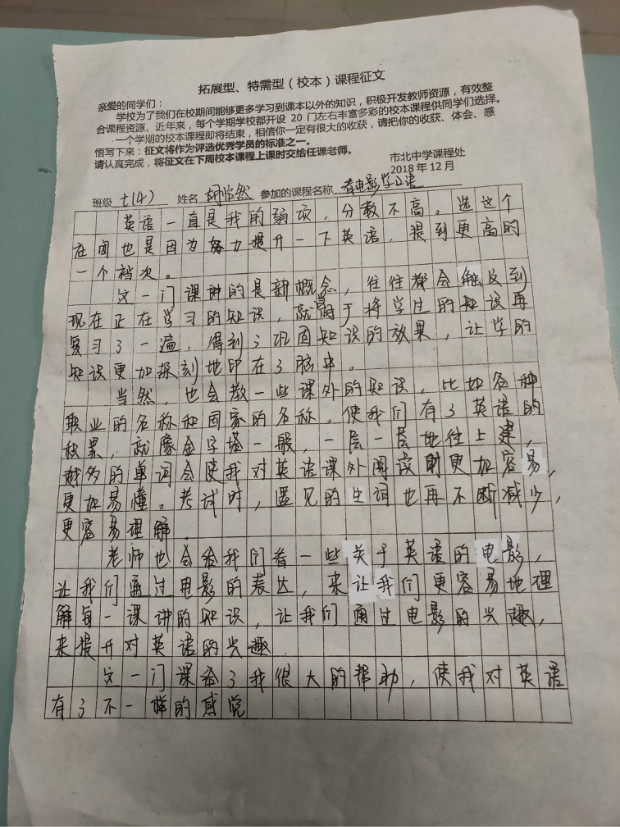 拓展型、特需型（校本）课程征文
亲爱的同学们：
学校为了我们在校期间能够更多学习到课本以外的知识，积极开发教师资源，有效整
合课程资源、近年来，每个学期学校都开设 20 门左右丰富多彩的校本课程供同学们选择。
一个学期的校本课程即将结束，相信你一定有很大的收获，请把你的收获、体会、感
悟写下来：征文将作为评选优秀学员的标准之一。
请认真完成，将征文在下周校本课程上课时交给任课老师。
市北中学课程处
2018 年 12 月
班级 七(4) 姓名 参加的课程名称 看电影学口语
英语一直是我的弱项，分数不高。选这个
在闵也是因为努力提升一下英语，提到更高的
一个档次。
这一门课讲的是新概念，往往都会触及到
现在正在学习的知识，就等于将学生的知识再
复习了一遍，得到了巩固知识的效果，让学的
知识更加深刻地印在了脑中。
当然，也会教一些课外的知识，比如各种
职业的名称和国家的名称，使我们有了英语的
积累，就像金字塔一般，一层一层地往上建，
越多的单词会使我对英语课外阅读时更加容易，
更加易懂。考试时，遇见的生词也再不断减少，
更容易理解。
老师也会给我们看一些关于英语的电影，
让我们通过电影的表达，来让我们更容易地理
解每一课讲的知识，让我们通过电影的兴趣，
来提升对英语的兴趣
这一门课给了我很大的帮助，使我对英语
有了不一样的感觉